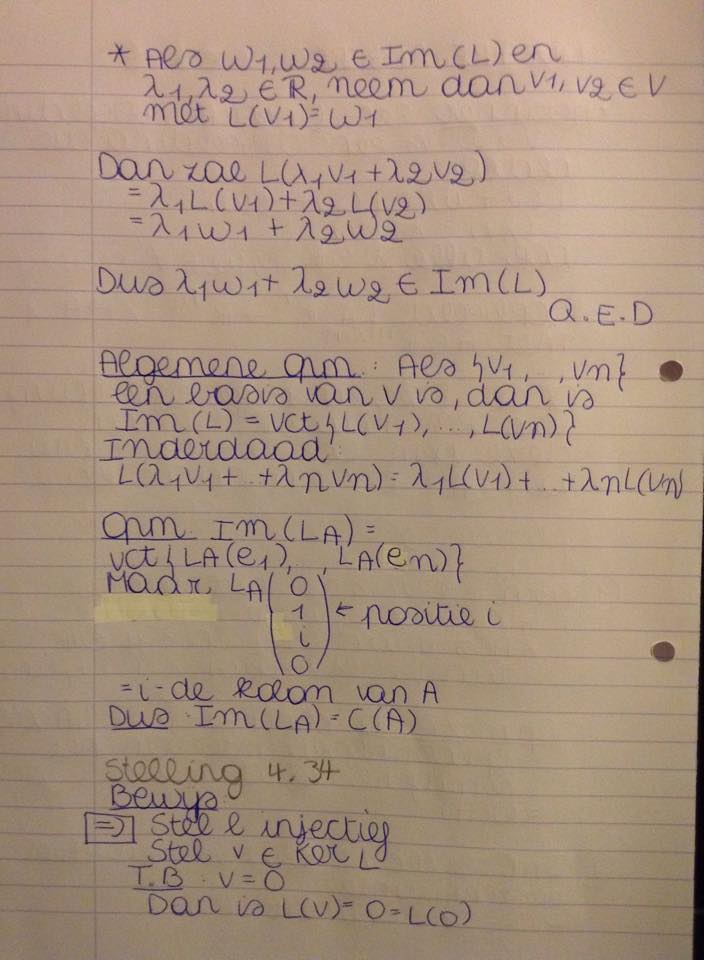 * Als w1, w2 ∈ Im(L) en
λ1, λ2 ∈ R, neem dan v1, v2 ∈ V
met L(v1) = w1
Dan zal L(λ1v1 + λ2v2)
= λ1L(v1) + λ2L(v2)
= λ1w1 + λ2w2
Dus λ1w1 + λ2w2 ∈ Im(L)
Q.E.D
Algemene Opm: Als {v1, .., vn}
een basis van V is, dan is
Im(L) = vct{L(v1), ..., L(vn)}
Inderdaad:
L(λ1v1 + .. + λnvn) = λ1L(v1) + .. + λnL(vn)
Opm. Im(LA) =
vct{LA(e1), .., LA(en)}
Maar, LA (0
1 ← positie i
i
0)
= i-de kolom van A
Dus · Im(LA) = C(A)
Stelling 4.34
Bewijs
⇒) Stel l injectief
Stel v ∈ Ker L
T.B. v = 0
Dan is L(v) = 0 = L(0)